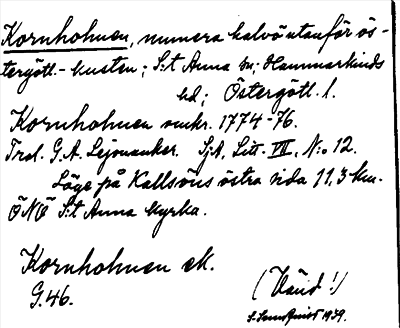 Kornholmen, numera halvö utanför ös-
tergötl.-kusten; S:t Anna sn; Hammarkinds
hd; Östergötl. l.
Kornholmen omkr. 1774-76.
Trol. G.A. Lejonanker. SjA, Litt. VII, N:o 12.
Läge på Kallsöns östra sida 11,3 km.
ÖNÖ S:t Anna kyrka.
Kornholmen ek.
G.46.
(Vänd!)
S. Sundquist 1939.